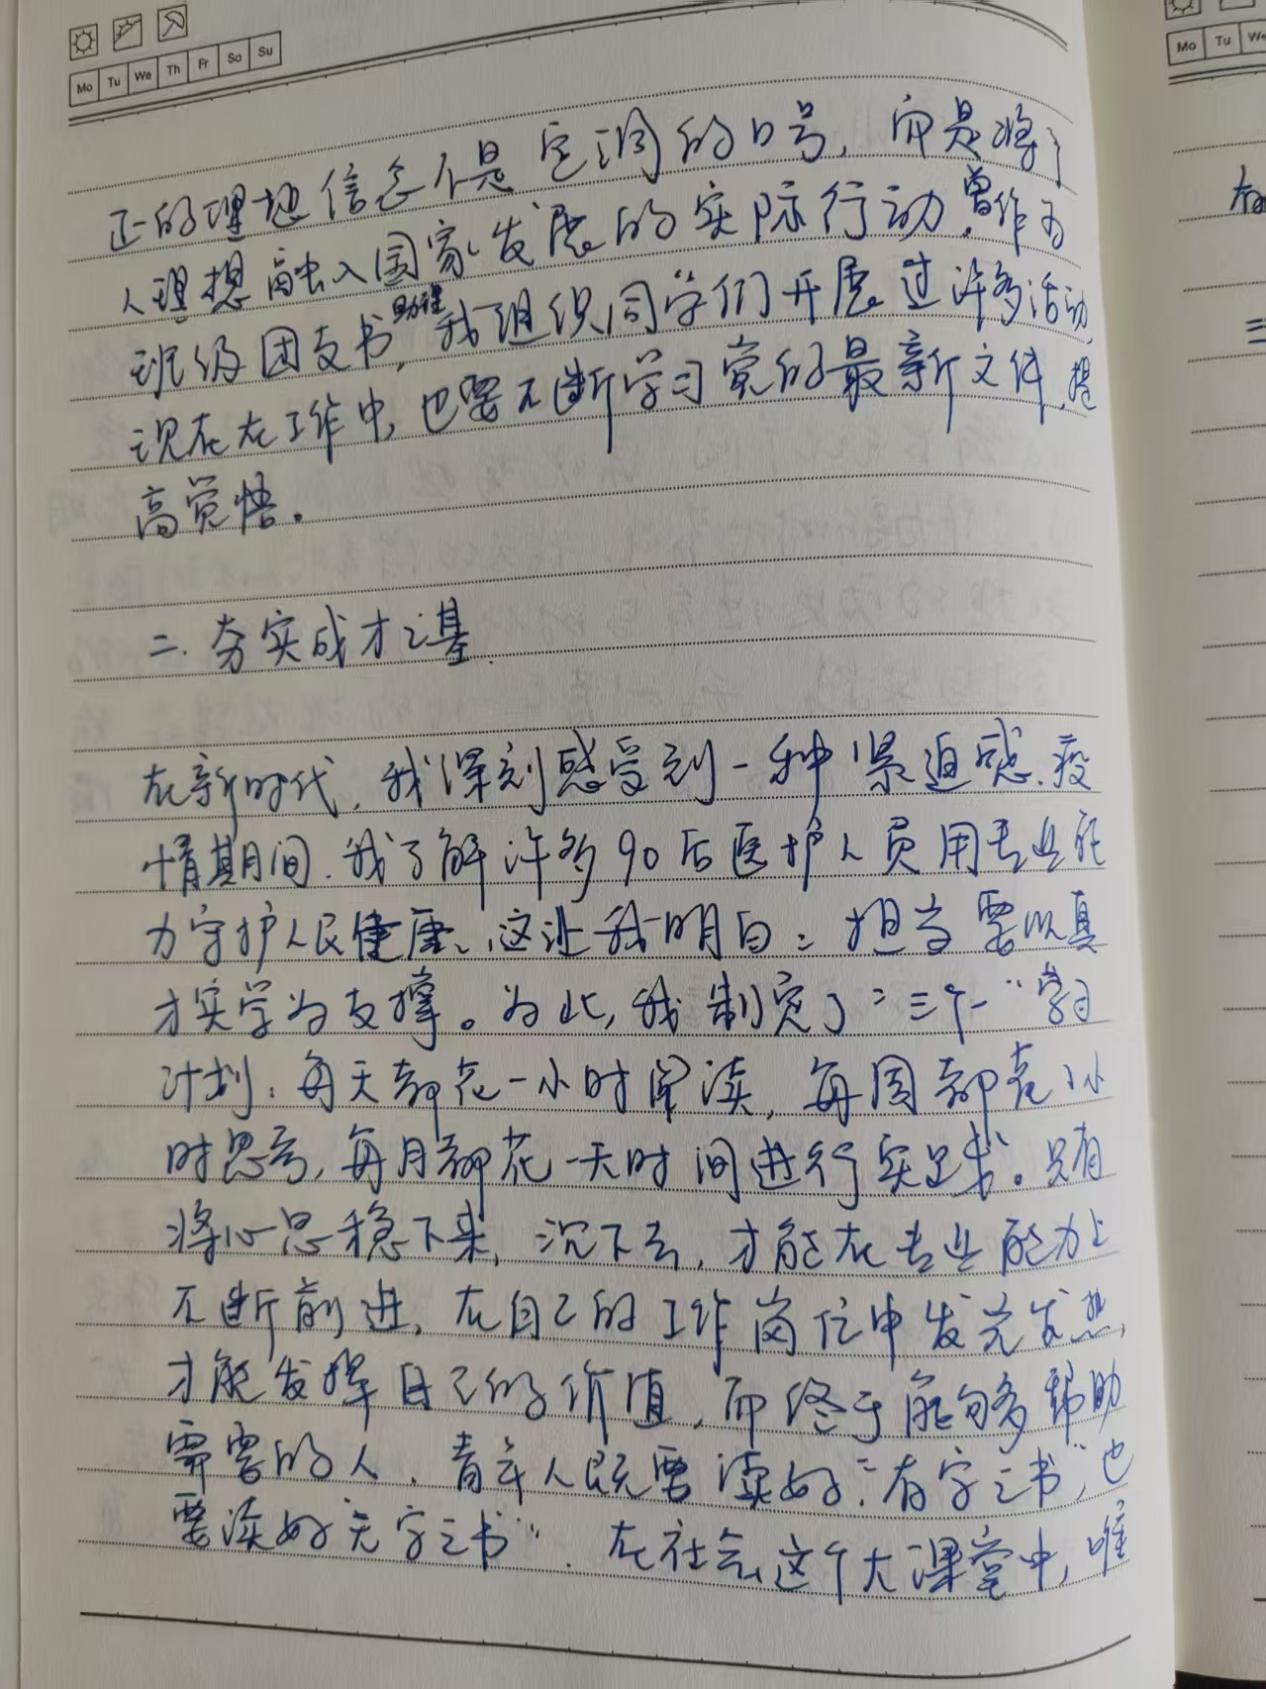 Mo Tu We Th Fr Sa Su
正的理想信念不是空洞的口号,而是将个
人理想融入国家发展的实际行动。曾作为
班级团支书助理,我组织同学们开展过许多活动,
现在在工作中,也要不断学习党的最新文件,提
高觉悟。
二.夯实成才之基.
在新时代,我深刻感受到一种紧迫感.疫
情期间.我了解许多90后医护人员用专业能
力守护人民健康.,这让我明白:担当要以真
才实学为支撑。为此,我制定了"三个一"学习
计划:每天都花一小时阅读,每周都花1小
时思考,每月都花一天时间进行实践。只有
将心思稳下来,沉下去,才能在专业能力上
不断前进,在自己的工作岗位中发光发热,
才能发挥自己的价值,而终于能够多帮助
需要的人.青年人既要读好"有字之书",也
要读好"无字之书".在社会这个大课堂中,唯
Mo Tu We